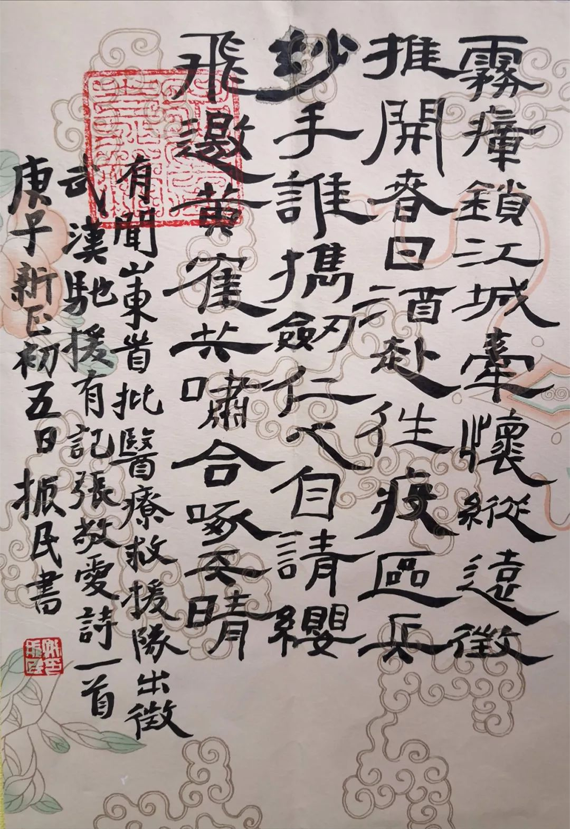 霧瘴鎖江城牽懷縱遠徵
推開春日酒赴往疫區兵
妙手誰攜劒仁心自請纓
飛邀黄隺共嘯合啄天晴
有聞山東首批醫療救援隊出徵
武漢馳援有記張敬愛詩一首
庚子新正初五日振民書